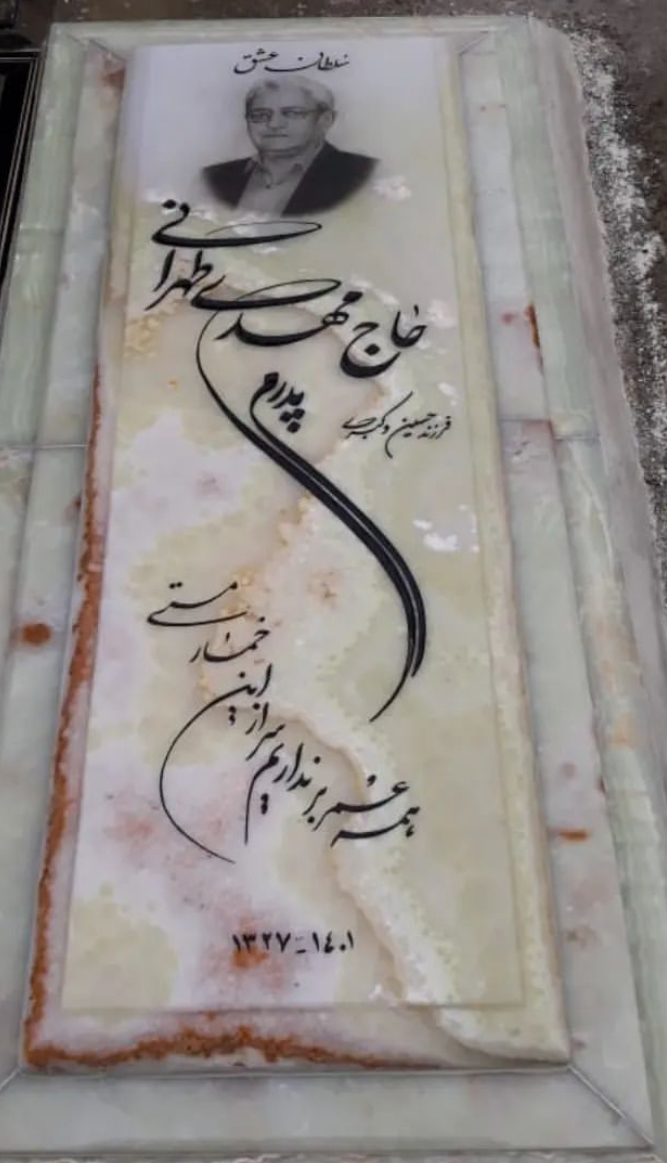 سلطان عشق
حاج مهدی طهرانی
پدرم
فرزند حسین و کبری
همه عمر بر نداریم سر از این خمار مستی
۱۳۲۷-۱۴۰۱